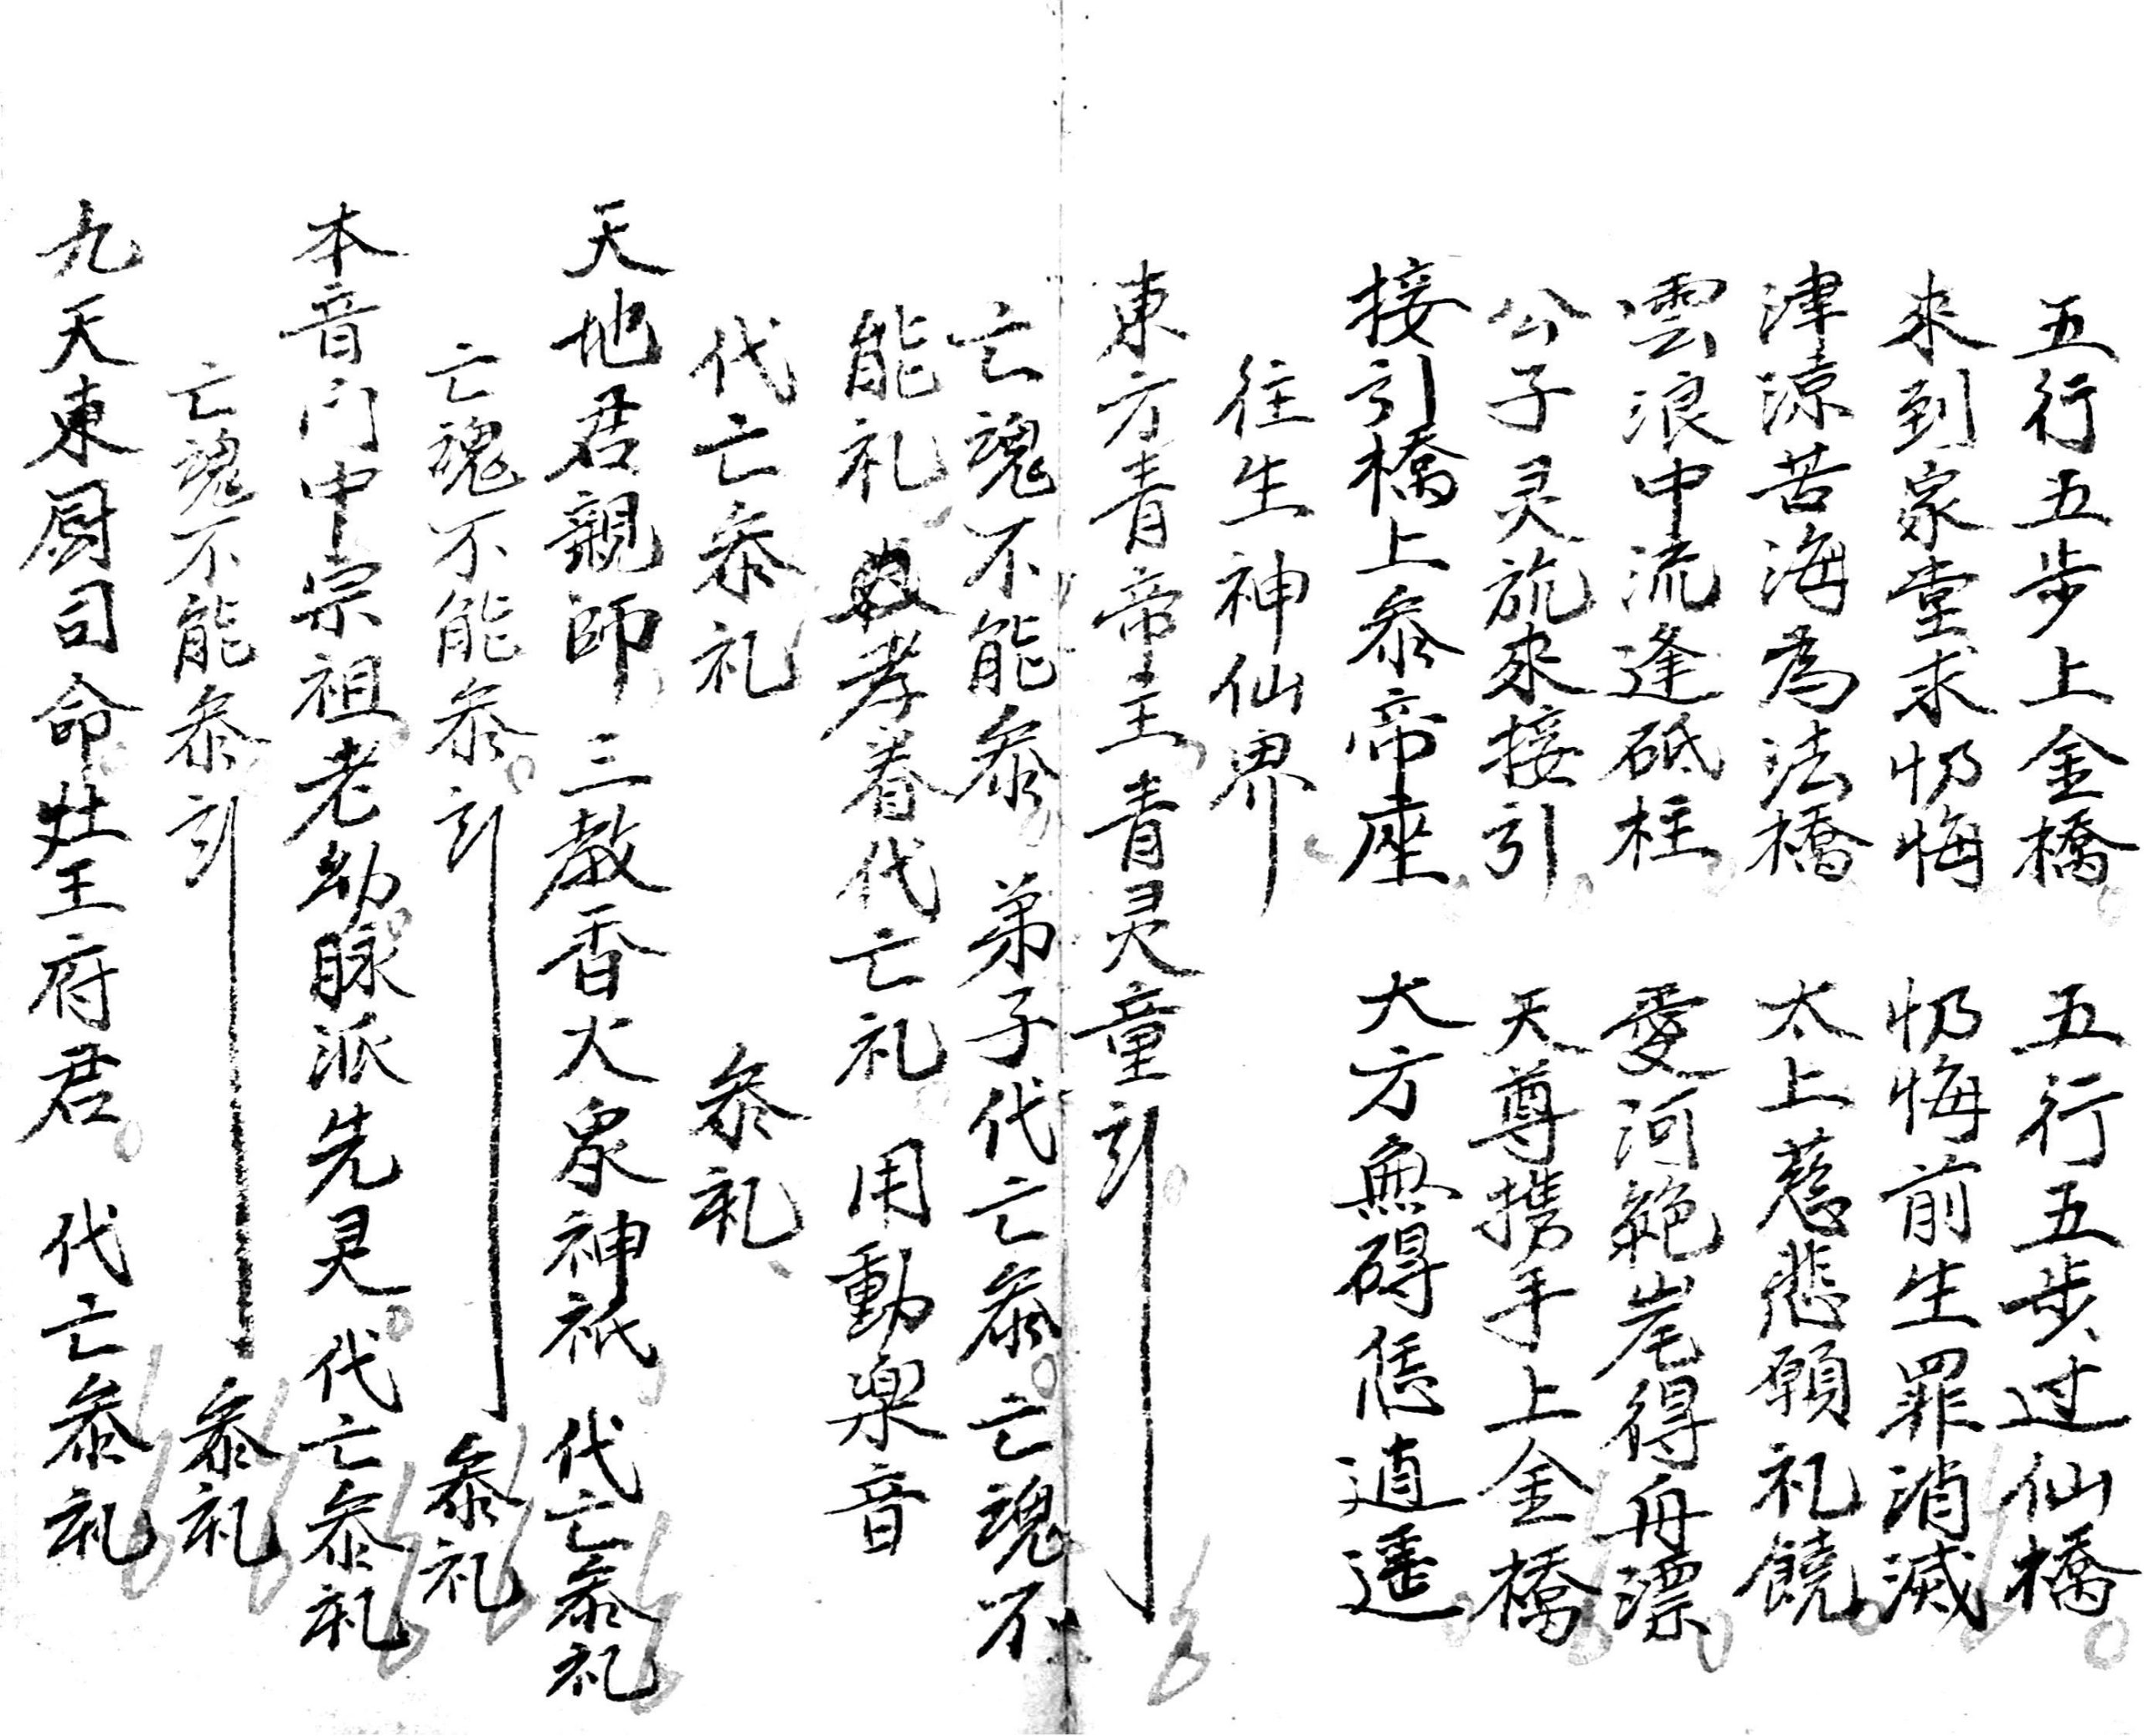 五行五步上金橋 五行五步过仙橋
來到家堂求忉悔 忉悔前生罪消滅
津涼苦海為法橋 太上慈悲願礼饒
雲浪中流逢砥柱 愛河絕岸得舟漂
公子灵旂來接引 天尊携手上金橋
接引橋上叅帝座 大方無碍恁逍遥
往生神仙界
東方青帝主青灵童
亡魂不能叅 弟子代亡叅 亡魂不
能礼 孝眷代亡礼 用動樂音
代亡叅礼 叅礼
天地君親師 三教香火衆神祇 代亡叅礼
亡魂不能叅 叅礼
本音门中宗祖老幼脉派先灵 代亡叅礼
亡魂不能叅 叅礼
九天東厨司命灶王府君 代亡叅礼